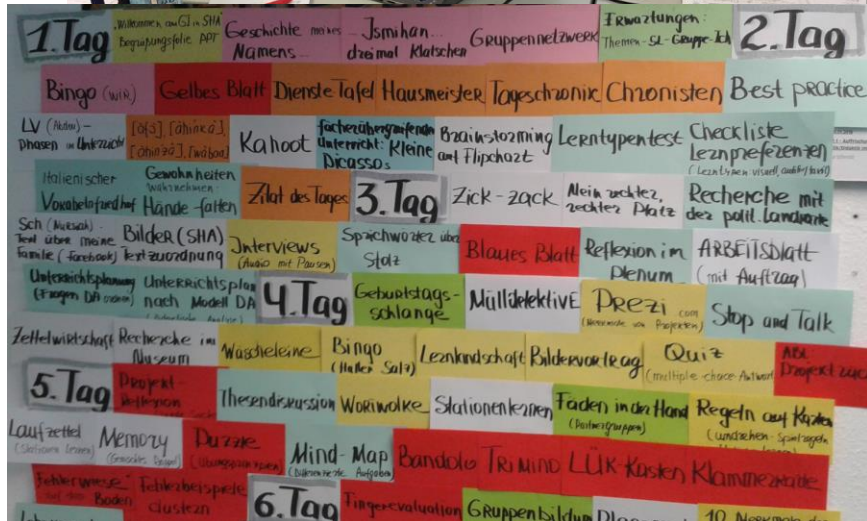 1. Tag
Willkommen am GI in SHA
Begrüßungsfolie PPT
Geschichte meines
Namens...
Jsmihan...
dreimal Klatschen
Gruppennetzwerk
Erwartungen:
Themen-SL-Gruppe-Ich
2. Tag
Bingo (WIR)
Gelbes Blatt
Dienste Tafel
Hausmeister
Tageschronik
Chronisten
Best practice
LV
Phasen im Unterricht
Kahoot
fächerübergreifenden
Unterricht: Kleine
Picassos
Brainstorming
auf Flipchart
Lerntypentest
Checkliste
Lernpreferenzen
Italienischer
Vokabelfriedhof
Gewohnheiten
wahrnehmen:
Hände falten
Zitat des Tages
3. Tag
Zick-zack
Mein rechter,
rechter Platz
Recherche mit
der polit. Landkarte
Text über meine
Familie (Facebook)
Bilder (SHA)
Textzuordnung
Jnterviews
(Audio mit Pausen)
Sprichwörter über
Stolz
Blaues Blatt
Reflexion im
Plenum
ARBEITSblatt
(mit Auftrag)
Unterrichtsplanung
Unterrichtsplan
nach Modell DA
4. Tag
Geburtstags-
schlange
MülldetektivE
Prezi.com
Stop and Talk
Zettelwirtschaft
Recherche im
Museum
Wäscheleine
Bingo
(Haller Salz)
Lernlandschaft
Bildervortrag
Quiz
(multiple-choice-Antwort
5. Tag
Projekt-
Reflexion
Thesendiskussion
Wortwolke
Stationenlernen
Faden in der Hand
(Partnergruppen)
Regeln auf Karten
Laufzettel
(Stationen lernen)
Memory
Puzzle
Mind-Map
Bandolo
Trimino
LÜK-Kasten
Klammerkarte
Fehlerwiese
auf dem Boden
Fehlerbeispiele
clustern
6. Tag
Fingerevaluation
Gruppenbildun